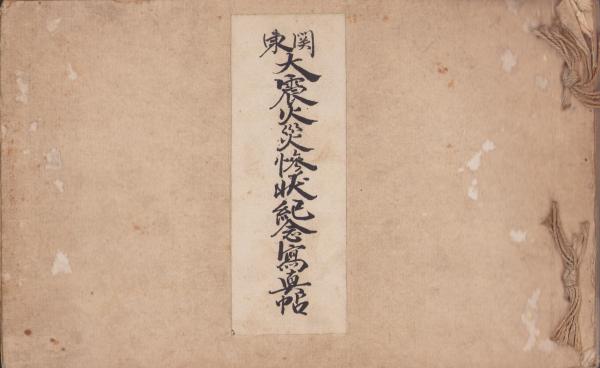 関東
大震火災惨状紀念寫真帖